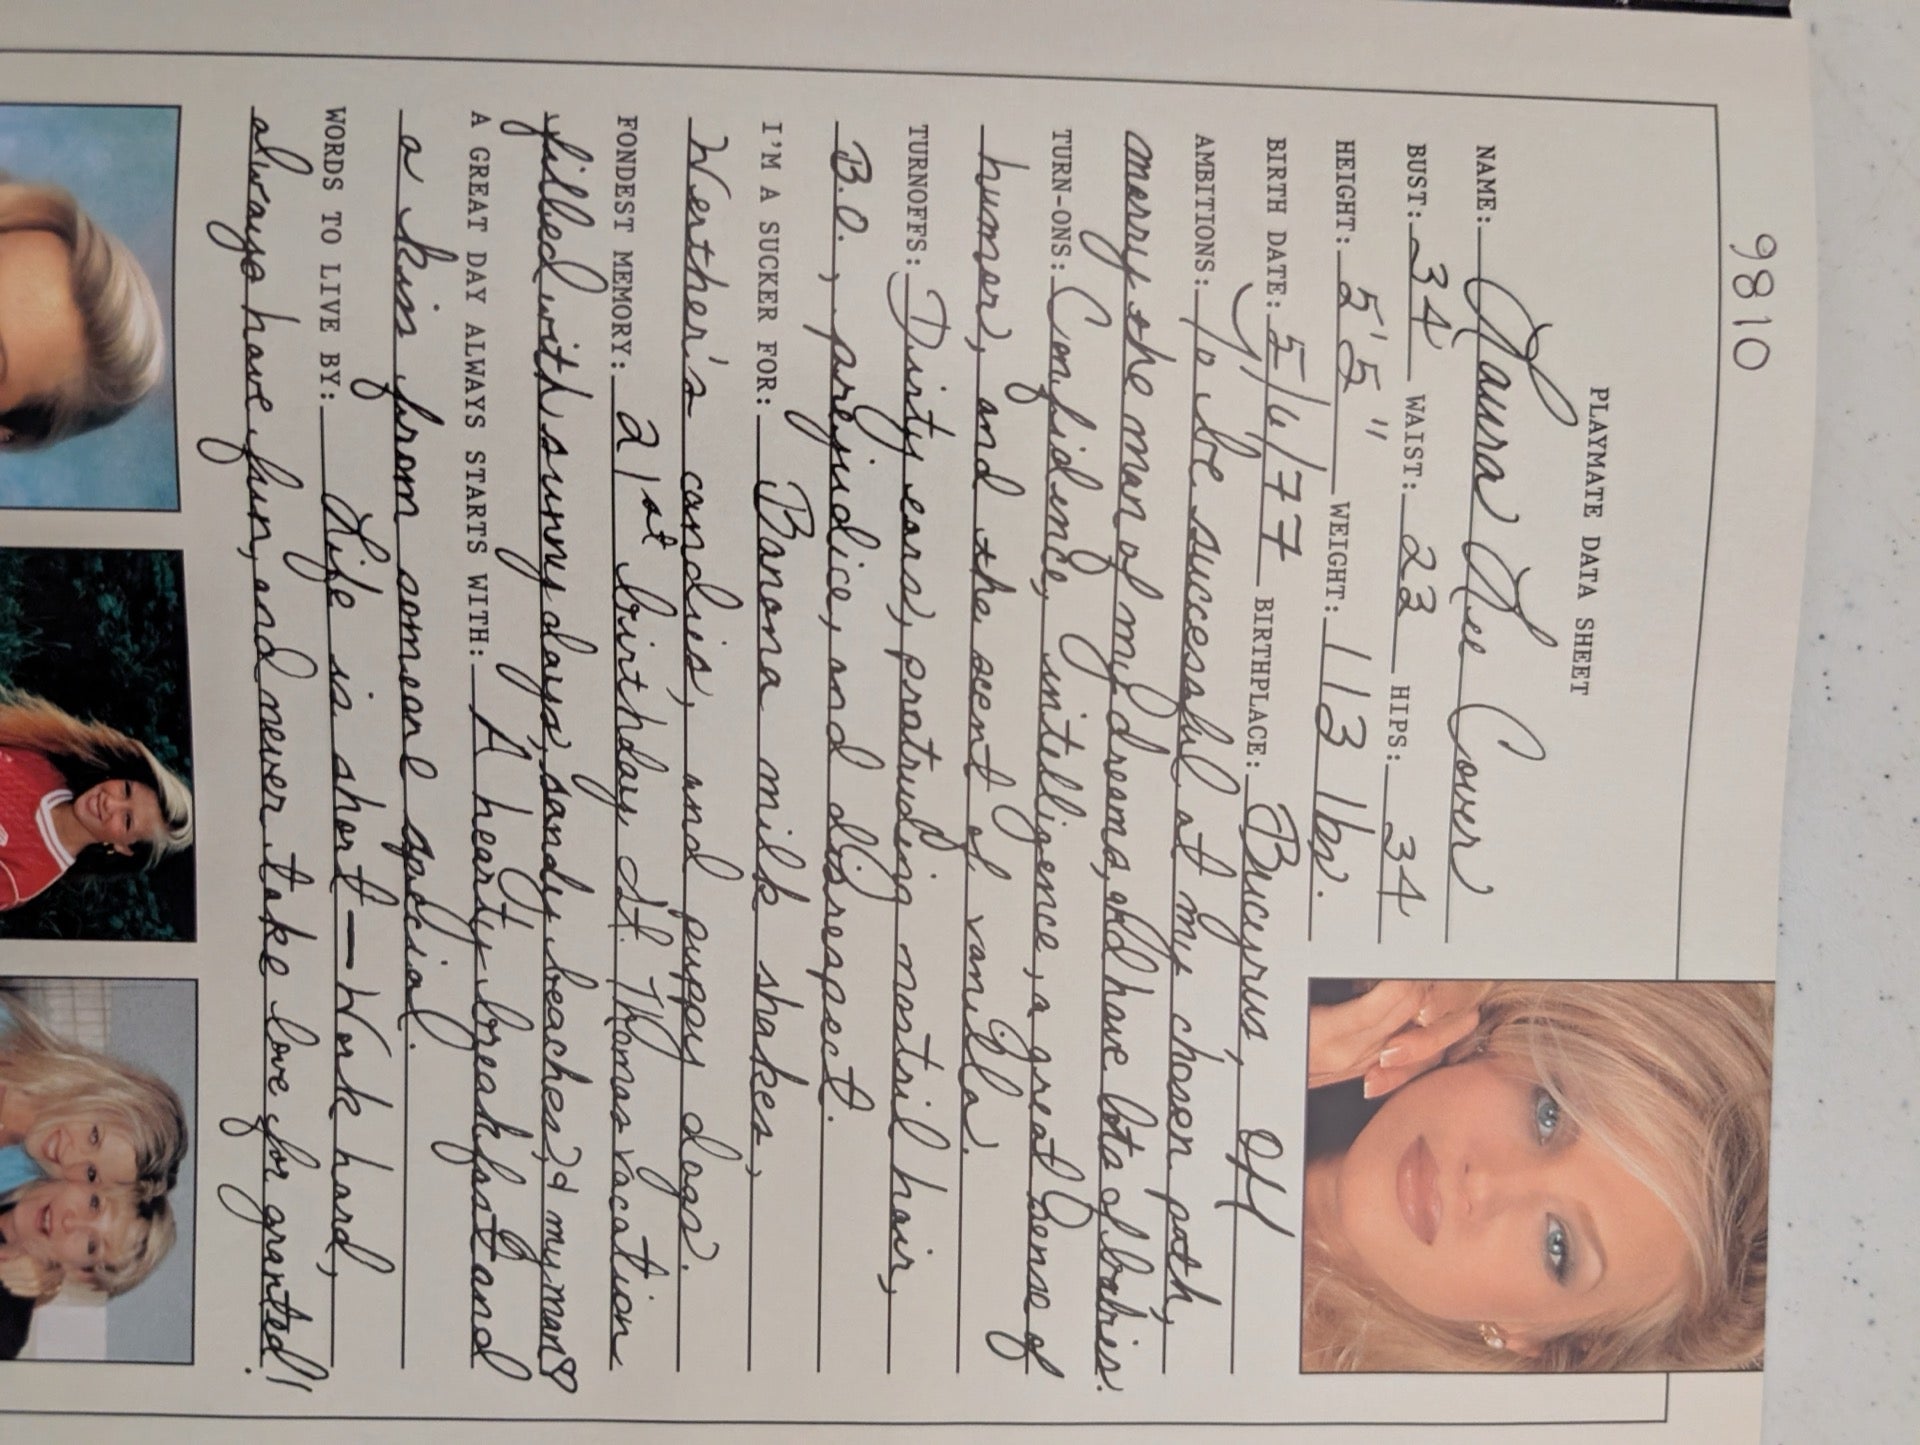 9810
PLAYMATE DATA SHEET
NAME: Laura Lee Cover
BUST: 34 WAIST: 23 HIPS: 34
HEIGHT: 5'5" WEIGHT: 113 lbs.
BIRTH DATE: 5/6/77 BIRTHPLACE: Bucyrus, OH
AMBITIONS: To be successful at my chosen path,
marry the man of my dreams, and have lots of babies.
TURN-ONS: Confidence, intelligence, a great sense of
humor, and the scent of vanilla.
TURNOFFS: Dirty ears, protruding nostril hair,
B.O., prejudice, and disrespect.
I'M A SUCKER FOR: Banana milk shakes,
Werther's candies, and puppy dogs.
FONDEST MEMORY: 21st birthday St. Thomas vacation
filled with sunny days, sandy beaches, & my man ♡
A GREAT DAY ALWAYS STARTS WITH: A hearty breakfast and
a kiss from someone special.
WORDS TO LIVE BY: Life is short — Work hard,
always have fun, and never take love for granted!!